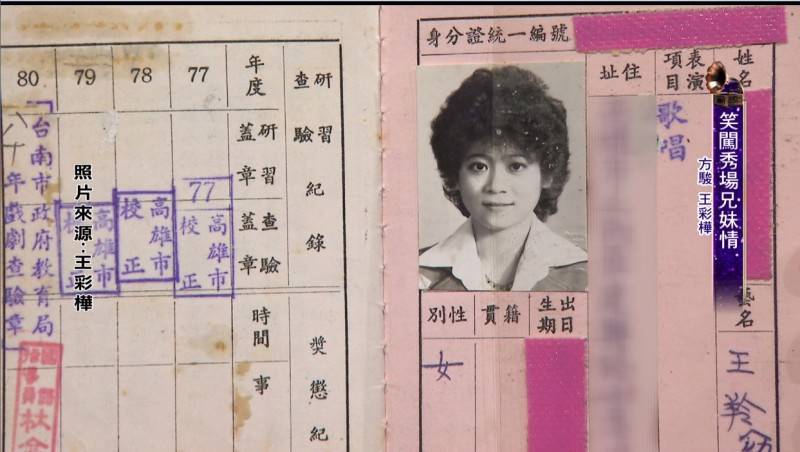 身分證統一編號
姓名
表演項目
歌唱
住址
出生日期
籍貫
性別
女
藝名
王羚
笑闖秀場兄妹情
方駿 王彩樺
研習查驗紀錄
年度
77
78
79
80
研習蓋章
查驗蓋章
77
高雄市
校正
高雄市
校正
高雄市
校正
台南市政府教育局
八十年戲劇查驗章
照片來源：王彩樺
時間
事
獎懲紀